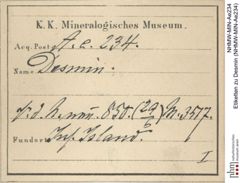 K. K. Mineralogisches Museum.
Acq. Post A. e. 234.
Name Desmin.
850. 3577.
Fundort Ins. Island
I
NHMW-MIN-Ae234
Etiketten zu Desmin (NHMW-MIN-Ae234)
nhm